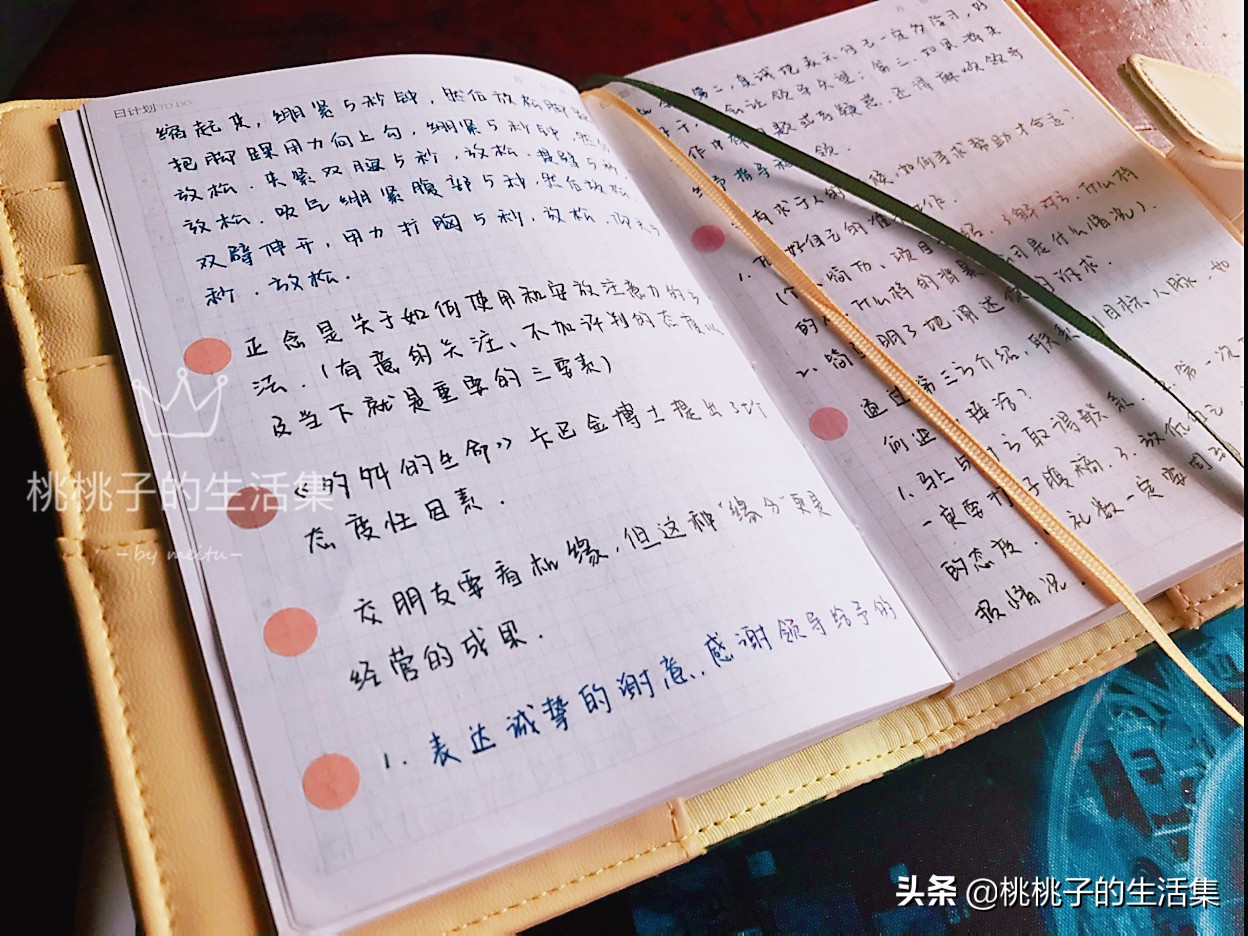 日计划 TO DO
缩起来,绷紧5秒钟,然后放松脚
把脚踝用力向上勾,绷紧5秒钟,
放松.夹紧双腿5秒,放松.提臀5
放松.吸气绷紧腹部5秒,然后放松
双臂伸开,用力扩胸5秒,放松.
秒.放松.
正念是关于如何使用和安放注意力的
法.(有意的关注、不加评判的态度以
及当下就是重要的三要素)
的生命》卡巴金博士提出了
态度性因素.
交朋友要看机缘,但这种"缘分"更是
经营的成果.
1.表达诚挚的谢意.感谢领导给予的
第二,真诚地表示自己一定努学习,
会让领导失望;第三.如果将来
作中有问题或有疑惑,还得麻烦领导
指导
有求于人的时候,如何寻求帮助才合适?
好自己的准备工作.
简历、项目介绍.了解对方.什么样
的人.什么样的背景.公司是什么情况).
2.简单明了地阐述你的诉求.
通过第三方介绍,联系目标人脉.如
何进接洽?
1.马上与对方取得联系.2.第一次
一定要打好腹稿.3.放低自己
的态度.礼数一定要周
报情况.
桃桃子的生活集
-by meitu-
头条 @桃桃子的生活集